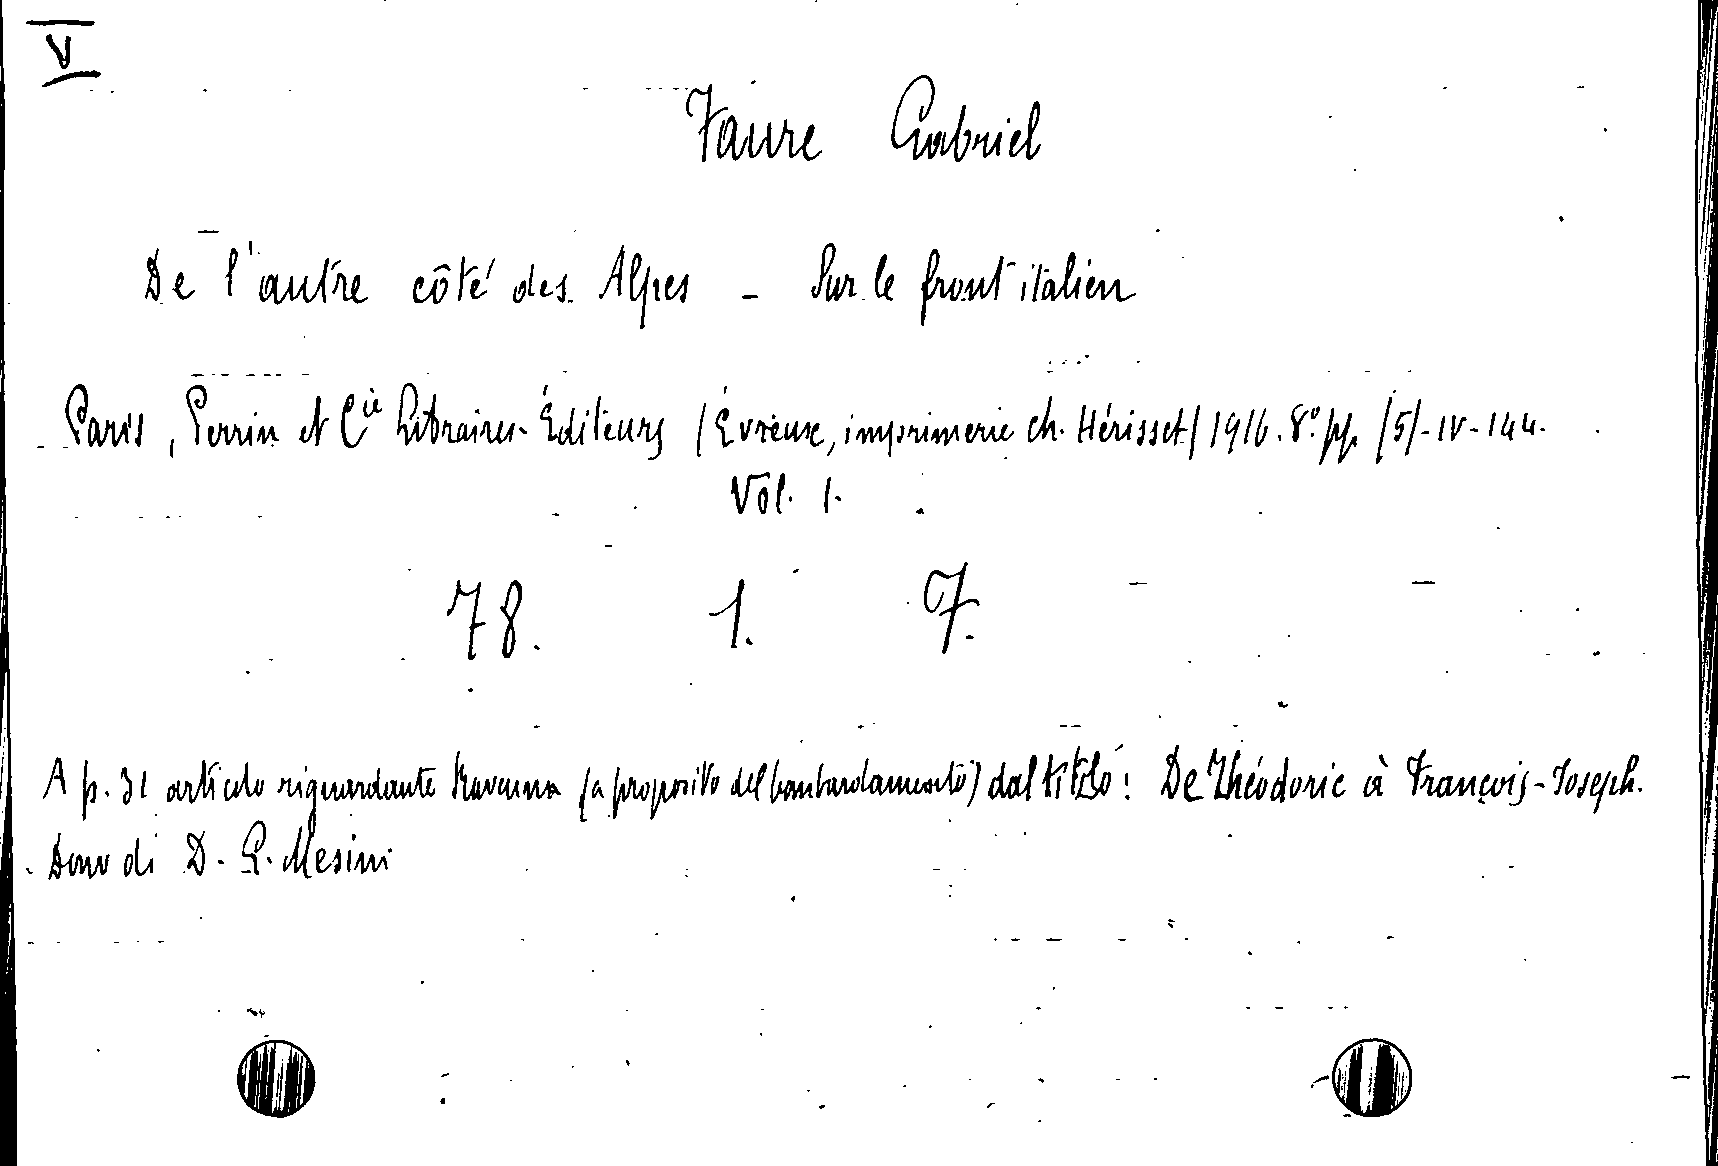 V
Faure Gabriel
De l'autre côté des Alpes - Sur le front italien
Paris, Perrin et Cie Libraires-Éditeurs (Évreux, imprimerie Ch. Hérissey) 1916. 8° pp. (5)-IV-144.
Vol. 1.
78. 1. 7.
A p. 31 articolo riguardante Ravenna (a proposito del bombardamento) dal titolo: De Théodoric à François-Joseph.
Dono di D. G. Mesini